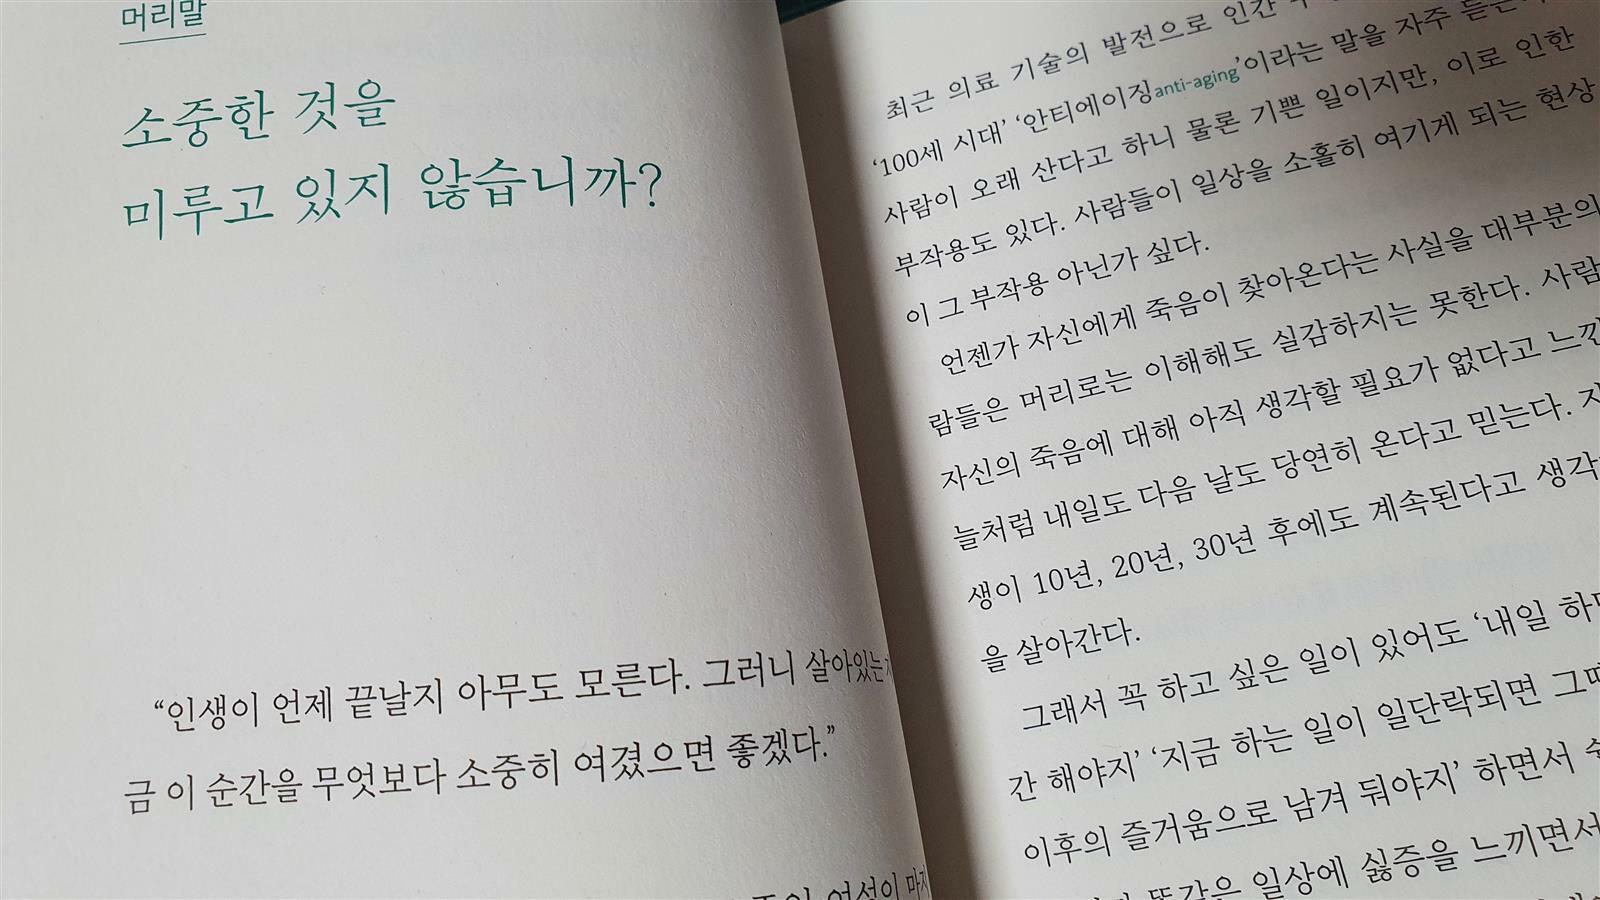 머리말
소중한 것을
미루고 있지 않습니까?
“인생이 언제 끝날지 아무도 모른다. 그러니 살아있는
금 이 순간을 무엇보다 소중히 여겼으면 좋겠다.”
여성이
최근 의료 기술의 발전으로 인간
‘100세 시대’ ‘안티에이징anti-aging’이라는 말을 자주
사람이 오래 산다고 하니 물론 기쁜 일이지만, 이로 인한
부작용도 있다. 사람들이 일상을 소홀히 여기게 되는 현상
이 그 부작용 아닌가 싶다.
언젠가 자신에게 죽음이 찾아온다는 사실을 대부분의
람들은 머리로는 이해해도 실감하지는 못한다. 사람
자신의 죽음에 대해 아직 생각할 필요가 없다고
늘처럼 내일도 다음 날도 당연히 온다고 믿는다.
생이 10년, 20년, 30년 후에도 계속된다고 생각
을 살아간다.
그래서 꼭 하고 싶은 일이 있어도 ‘내일
간 해야지’ ‘지금 하는 일이 일단락되면
이후의 즐거움으로 남겨 둬야지’ 하면서
똑같은 일상에 싫증을 느끼면서